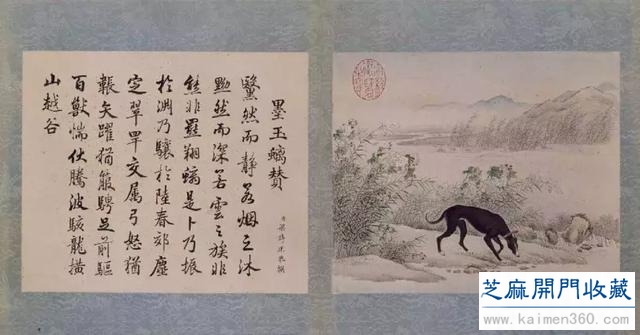 墨玉螭賛
臣梁詩正恭撰
黳然而静若烟之沐
黝然而深若雲之族非
熊非羆翔螭是卜乃振
於淵乃驤於陸春郊塵
定翠罕交属弓怒猶
韔矢躍猶箙騁足前驅
百獸惴伏騰波駭龍横
山越谷
芝麻開門收藏
www.kaimen360.com